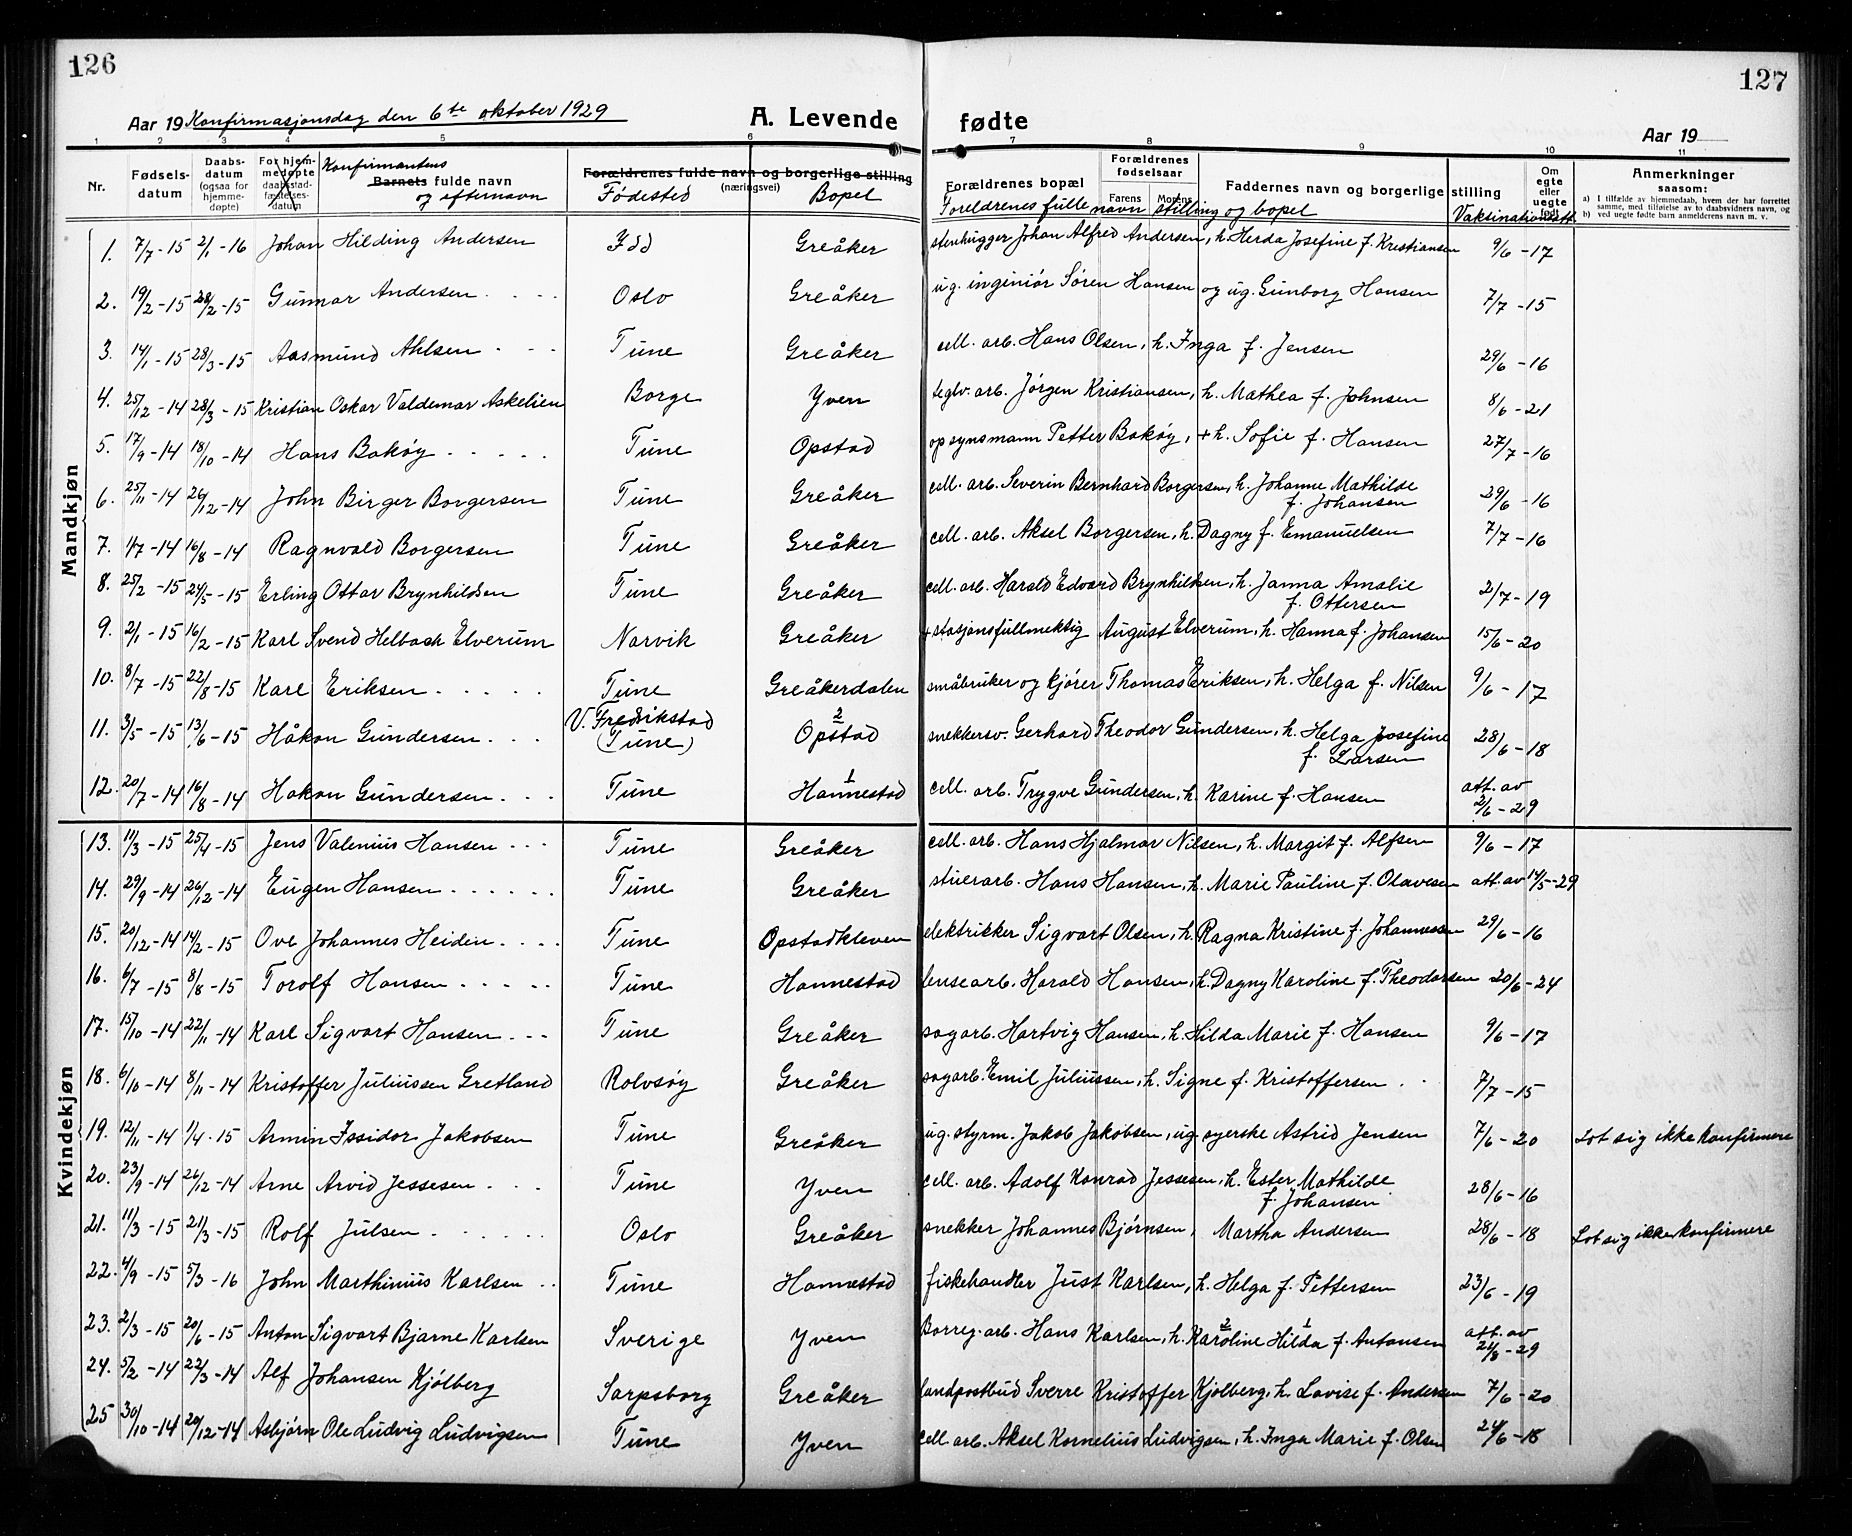 126
127
Aar 19 Konfirmasjonsdag den 6te oktober 1929
A. Levende fødte
Aar 19
1 2 3 4 5 6 7 8 9 10 11
Nr. Fødsels-datum Daabs-datum (ogsaa for hjemme-døpte) For hjem-medøpte daabsstad-fæstelses-datum Konfirmantens Barnets fulde navn og efternavn Forældrenes fulde navn og borgerlige stilling (næringsvei) Fødested Bopel Forældrenes bopæl Forældrenes fødselsaar Farens Morens Faddernes navn og borgerlige stilling Foreldrenes fulle navn stilling og bopel Om egte eller uegte født Vaksinationsatt. Anmerkninger saasom: a) I tilfælde av hjemmedaab, hvem der har forrettet samme, med tilføielse av to daabsvidners navn, og b) ved uegte fødte barn anmelderens navn m. v.
Mandkjøn
1. 7/7-15 2/1-16 Johan Hilding Andersen Idd Greåker stenhugger Johan Alfred Andersen, h. Herda Josefine f. Kristiansen 9/6-17
2. 19/2-15 28/2-15 Gunnar Andersen Oslo Greåker ug. ingeniør Søren Hansen og ug. Gunborg Hansen 7/7-15
3. 14/1-15 28/3-15 Aasmund Ahlsen Tune Greåker cell. arb. Hans Olsen, h. Inga f. Jensen 29/6-16
4. 25/12-14 28/3-15 Kristian Oskar Valdemar Askelien Borge Yven teglv. arb. Jørgen Kristiansen, h. Mathea f. Johnsen 8/6-21
5. 17/9-14 18/10-14 Hans Bakøy Tune Opstad opsynsmann Petter Bakøy, + h. Sofie f. Hansen 27/7-16
6. 25/11-14 26/12-14 John Birger Borgersen Tune Greåker cell. arb. Severin Bernhard Borgersen, h. Johanne Mathilde f. Johansen 29/6-16
7. 1/7-14 16/8-14 Ragnvald Borgersen Tune Greåker cell. arb. Aksel Borgersen, h. Dagny f. Emanuelsen 7/7-16
8. 25/2-15 24/5-15 Erling Ottar Brynhildsen Tune Greåker cell. arb. Harald Edvard Brynhildsen, h. Janna Amalie f. Ottersen 2/7-19
9. 2/1-15 16/2-15 Karl Svend Helbach Elverum Narvik Greåker + stasjonsfullmektig August Elverum, h. Hanna f. Johansen 15/6-20
10. 8/7-15 22/8-15 Karl Eriksen Tune Greåkerdalen småbruker og kjører Thomas Eriksen, h. Helga f. Nilsen 9/6-17
11. 3/5-15 13/6-15 Håkon Gundersen V. Fredrikstad (Tune) 2 Opstad snekkersv. Gerhard Theodor Gundersen, h. Helga Josefine f. Larsen 28/6-18
12. 20/7-14 16/8-14 Hakon Gundersen Tune 1 Hannestad cell. arb. Trygve Gundersen, h. Karine f. Hansen att. av 2/6-29
Kvindekjøn
13. 11/3-15 25/4-15 Jens Valenius Hansen Tune Greåker cell. arb. Hans Hjalmar Nilsen, h. Margit f. Alfsen 9/6-17
14. 29/9-14 26/12-14 Eugen Hansen Tune Greåker stuerarb. Hans Hansen, h. Marie Pauline f. Olavesen att. av 14/5-29
15. 20/12-14 14/2-15 Ove Johannes Heiden Tune Opstadkleven elektrikker Sigvart Olsen, h. Ragna Kristine f. Johannessen 29/6-16
16. 6/7-15 8/8-15 Torolf Hansen Tune Hannestad lensearb. Harald Hansen, h. Dagny Karoline f. Theodorsen 20/6-24
17. 15/10-14 22/11-14 Karl Sigvart Hansen Tune Greåker sagarb. Hartvig Hansen, h. Hilda Marie f. Hansen 9/6-17
18. 6/10-14 8/11-14 Kristoffer Juliussen Gretland Rolvsøy Greåker sagarb. Emil Juliussen, h. Signe f. Kristoffersen 7/7-15
19. 12/11-14 1/4-15 Armin Issidor Jakobsen Tune Greåker ug. styrm. Jakob Jakobsen, ug. syerske Astrid Jensen 7/6-20 Lot sig ikke konfirmere
20. 23/9-14 26/12-14 Arne Arvid Jessesen Tune Yven cell. arb. Adolf Konrad Jessesen, h. Ester Mathilde f. Johansen 28/6-16
21. 11/3-15 21/3-15 Rolf Julsen Oslo Greåker snekker Johannes Bjørnsen, Martha Andersen 28/6-18 Lot sig ikke konfirmere
22. 4/9-15 5/3-16 John Marthinius Karlsen Tune Hannestad fiskehandler Just Karlsen, h. Helga f. Pettersen 23/6-19
23. 2/3-15 20/6-15 Anton Sigvart Bjarne Karlsen Sverige Yven Borreg. arb. Hans Karlsen, h. 2 Karoline 1 Hilda f. Antonsen att. av 21/8-29
24. 5/2-14 22/3-14 Alf Johansen Kjølberg Sarpsborg Greåker landpostbud Sverre Kristoffer Kjølberg, h. Lovise f. Andersen 7/6-20
25 30/10-14 20/12-14 Asbjørn Ole Ludvig Ludvigsen Tune Yven cell. arb. Aksel Kornelius Ludvigsen, h. Inga Marie f. Olsen 24/6-18